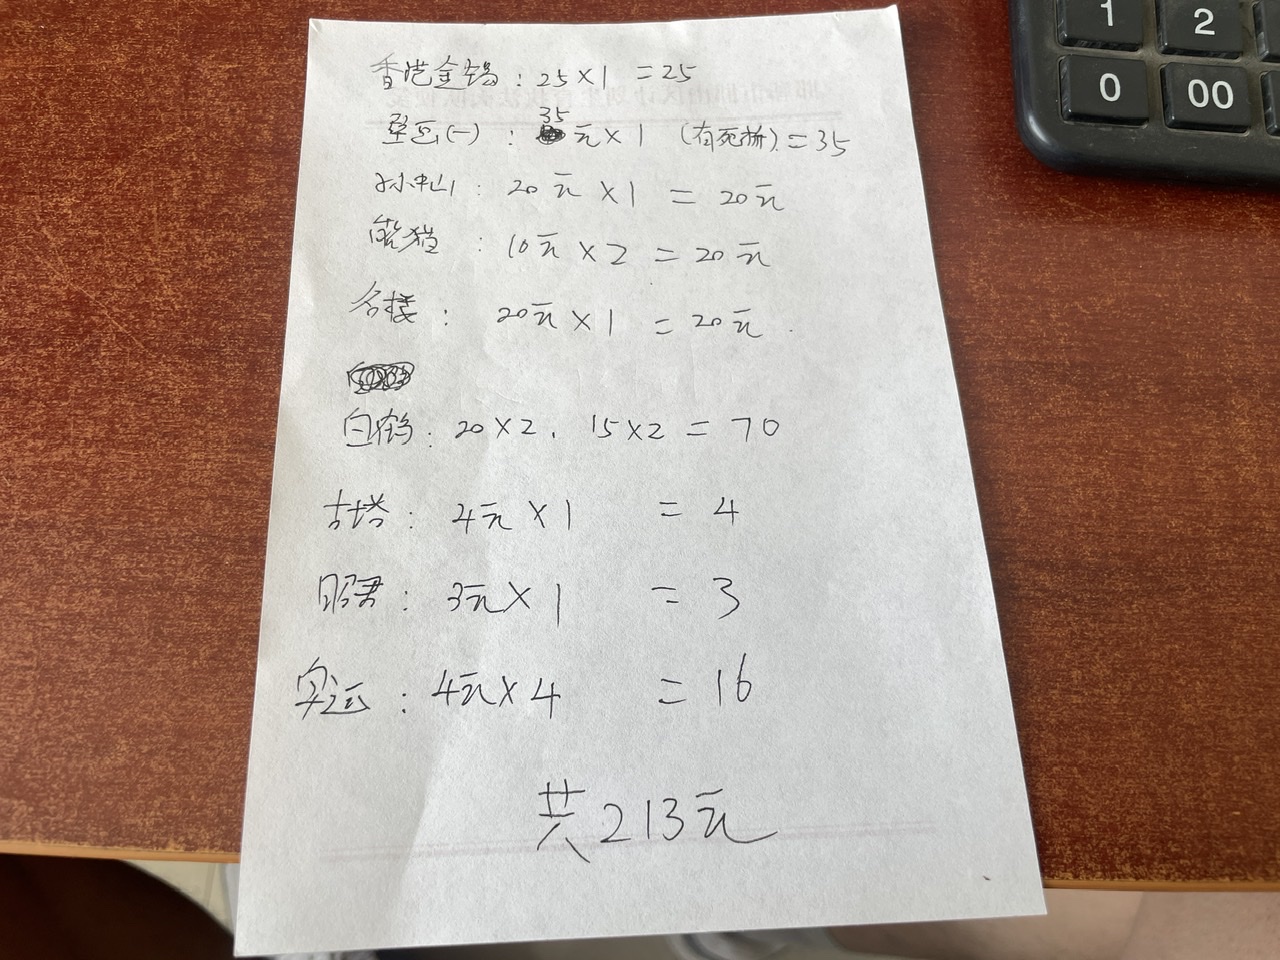 香港金锡：25×1 =25
圣运(一)：35元×1 (有死折)=35
孙中山：20元×1 = 20元
熊猫：10元×2 = 20元
名楼：20元×1 = 20元.
白鹤：20×2. 15×2 = 70
古塔：4元×1 = 4
昭君：3元×1 = 3
字运：4元×4 = 16
共213元
1 2
0 00